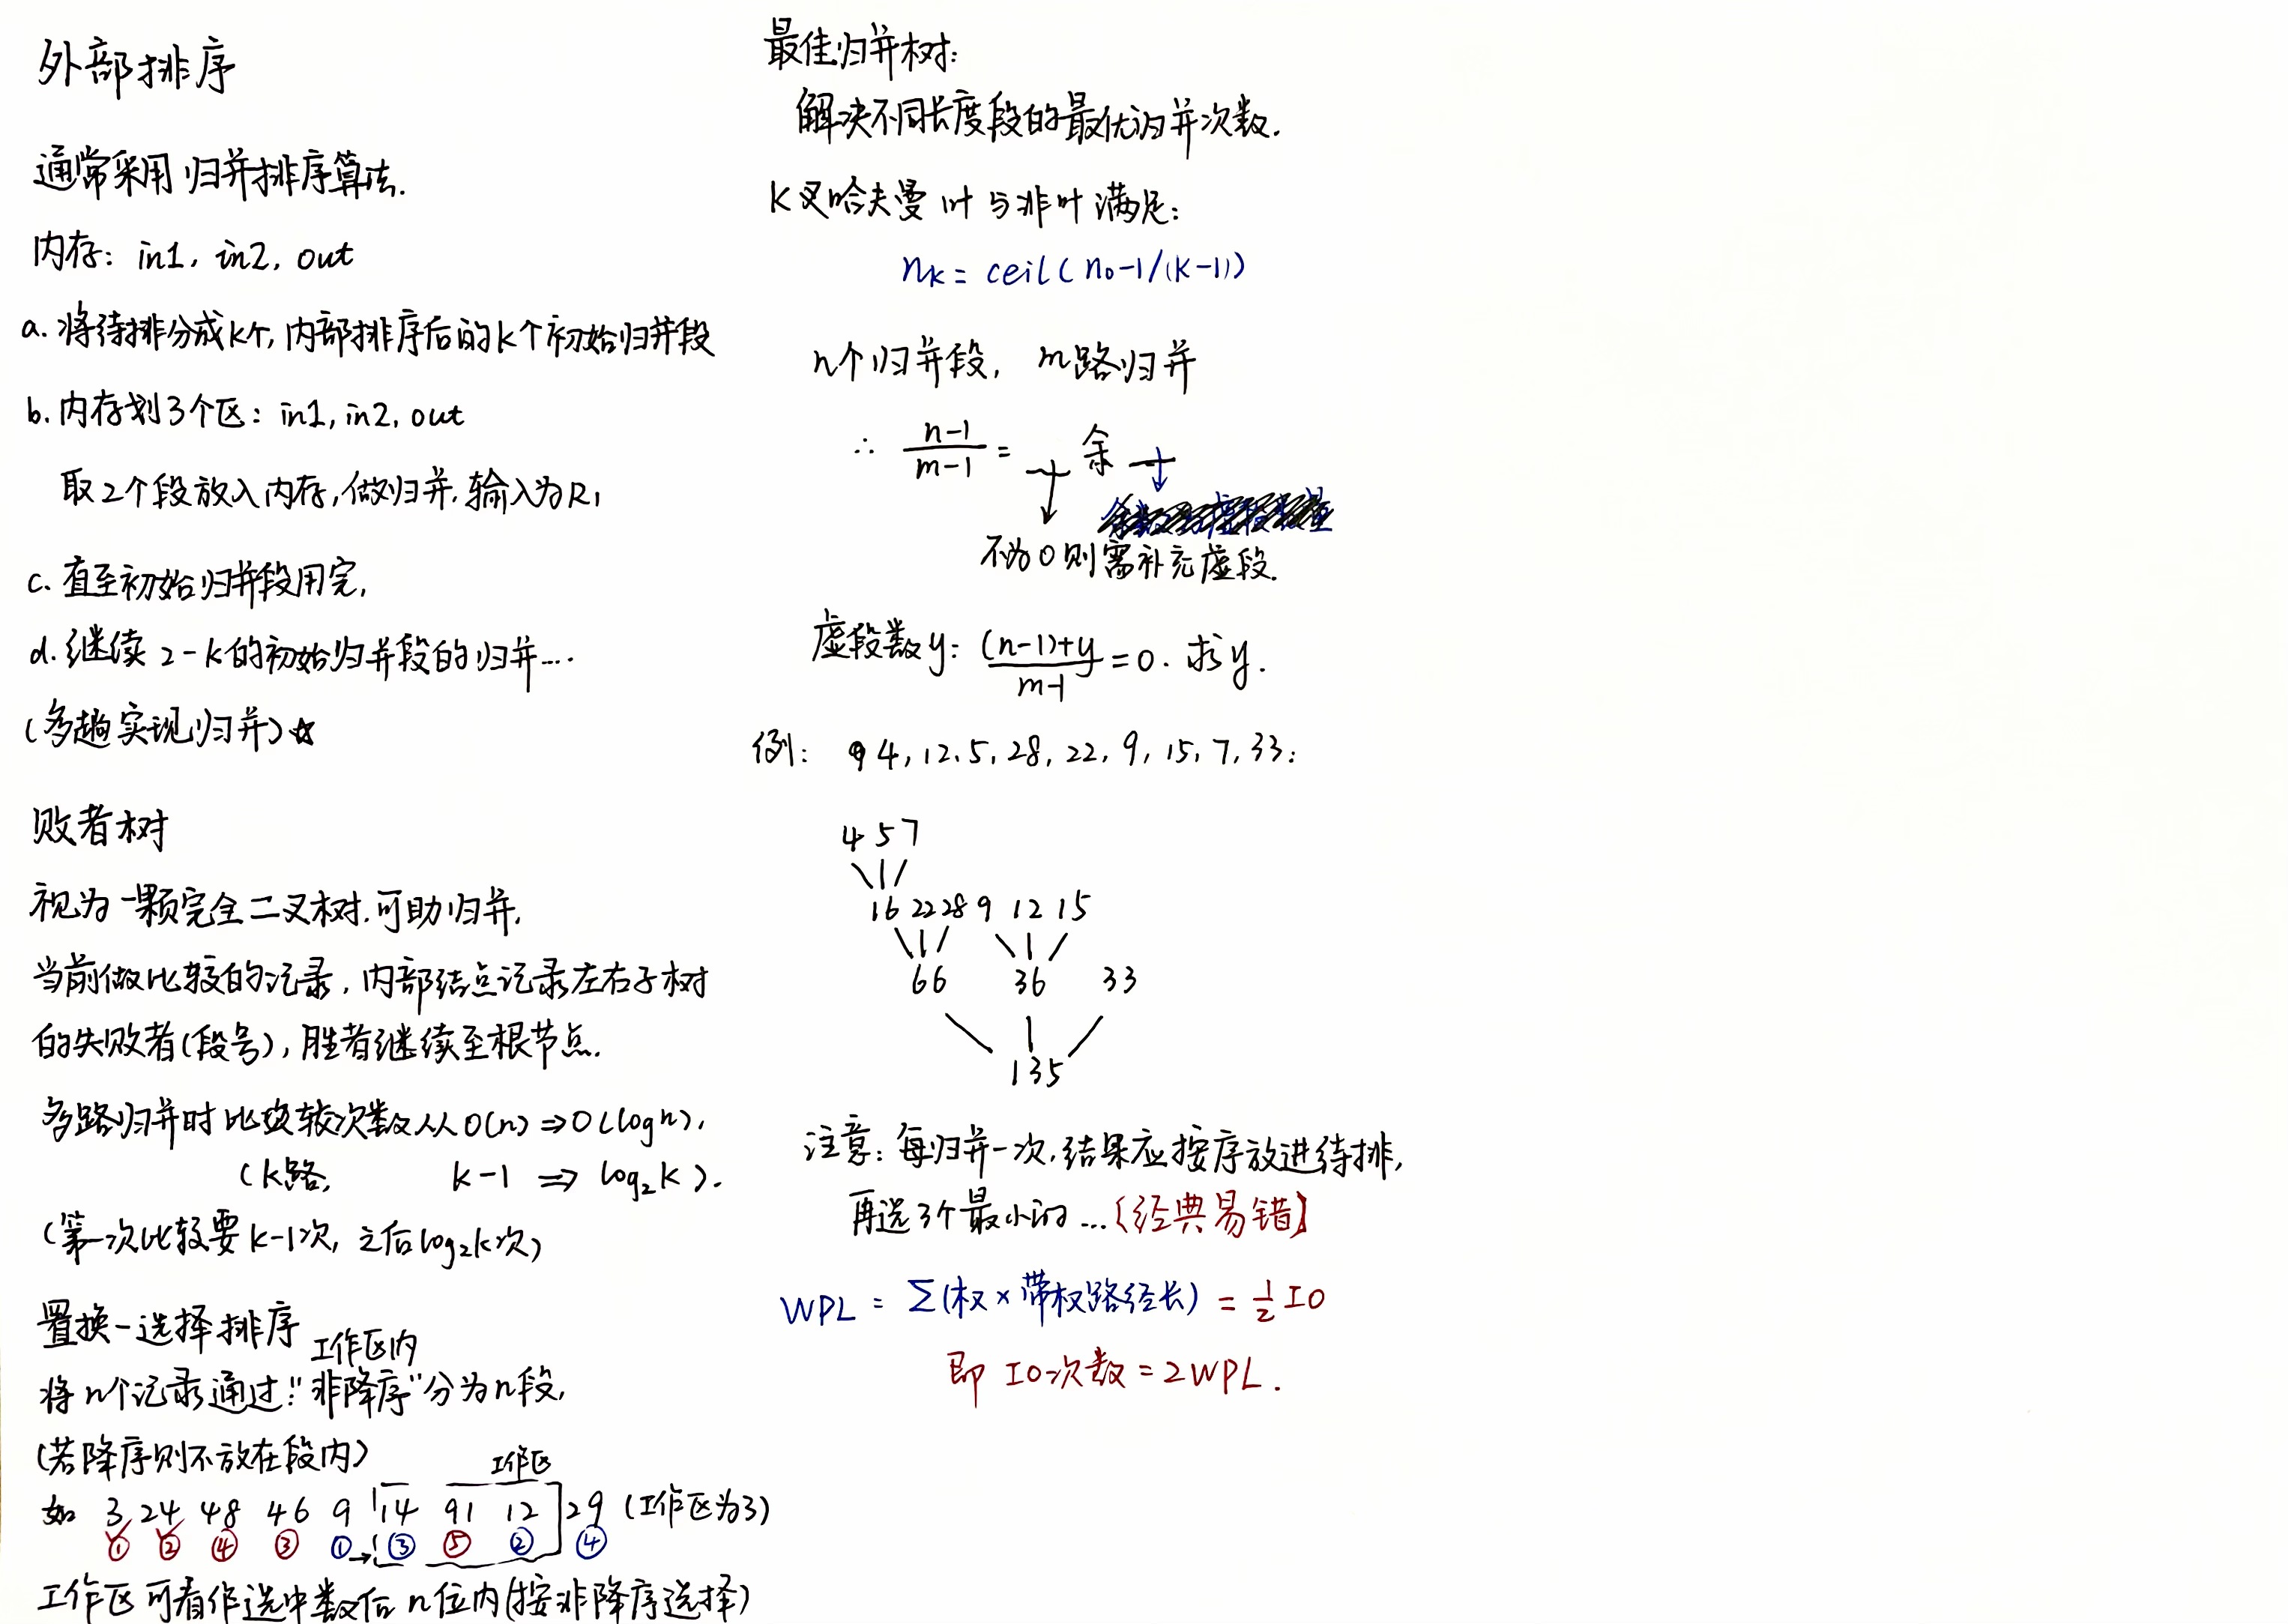 外部排序
通常采用归并排序算法.
内存: in1, in2, out
a. 将待排分成k个, 内部排序后的k个初始归并段
b. 内存划3个区: in1, in2, out
取2个段放入内存, 做归并. 输入为R1
c. 直至初始归并段用完,
d. 继续 2-k的初始归并段的归并....
(多趟实现归并)☆
败者树
视为一颗完全二叉树. 可助归并.
当前做比较的记录, 内部结点记录左右子树
的失败者(段号), 胜者继续至根节点.
多路归并时比较次数从O(n)⇒O(logn),
(k路, k-1 ⇒ log₂k).
(第一次比较要k-1次, 之后log₂k次)
置换-选择排序
工作区内
将n个记录通过"非降序"分为n段,
(若降序则不放在段内)
工作区
如 3 24 48 46 9 14 91 12 29 (工作区为3)
① ② ④ ③ ①→③ ⑤ ② ④
工作区可看作选中数后n位内(按非降序选择)
最佳归并树:
解决不同长度段的最优归并次数.
K叉哈夫曼叶与非叶满足:
nk = ceil(n₀-1/(k-1))
n个归并段, m路归并
∴ n-1/m-1 = _ 余 _
不为0则需补充虚段.
虚段数y: (n-1)+y/m-1 = 0. 求y.
例: 4, 12, 5, 28, 22, 9, 15, 7, 33:
4 5 7
16 22 28 9 12 15
66 36 33
135
注意: 每归并一次, 结果应按序放进待排,
再选3个最小的 ... 【经典易错】
WPL = Σ(权×带权路径长) = ½IO
即 IO次数 = 2WPL.